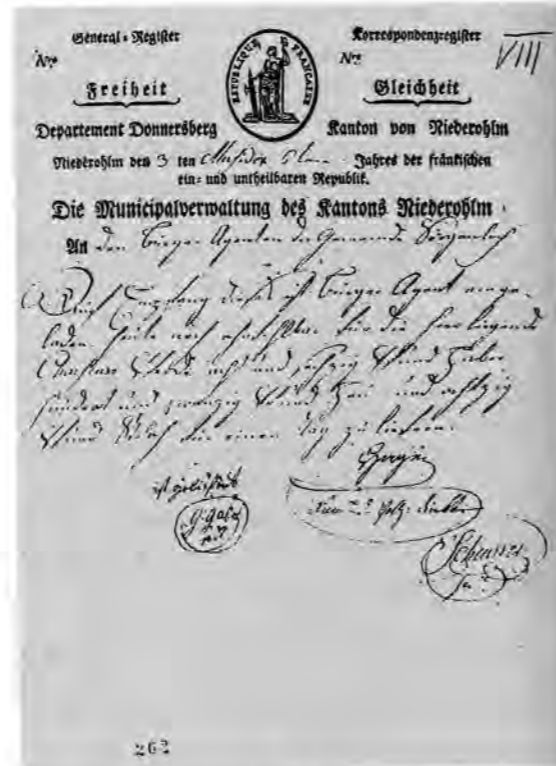 General-Register
Korrespondenzregister
VIII
Nro
Nro
Freiheit
REPUBLIQUE FRANCAISE
Gleichheit
Departement Donnersberg
Kanton von Niederohlm
Niederohlm den 3 ten Messidor 6 Jahres der fränkischen
ein- und untheilbaren Republik.
Die Municipalverwaltung des Kantons Niederohlm
An den Bürger Agenten der Gemeinde Sörgenloch
Empfang dieses ist Bürger Agent einge-
laden heute noch für die hier liegende
Pferde acht und sechzig Pfund Haber
hundert und zwanzig Pfund Heu und achtzig
Pfund Stroh für einen Tag zu liefern.
ist geliefert
262